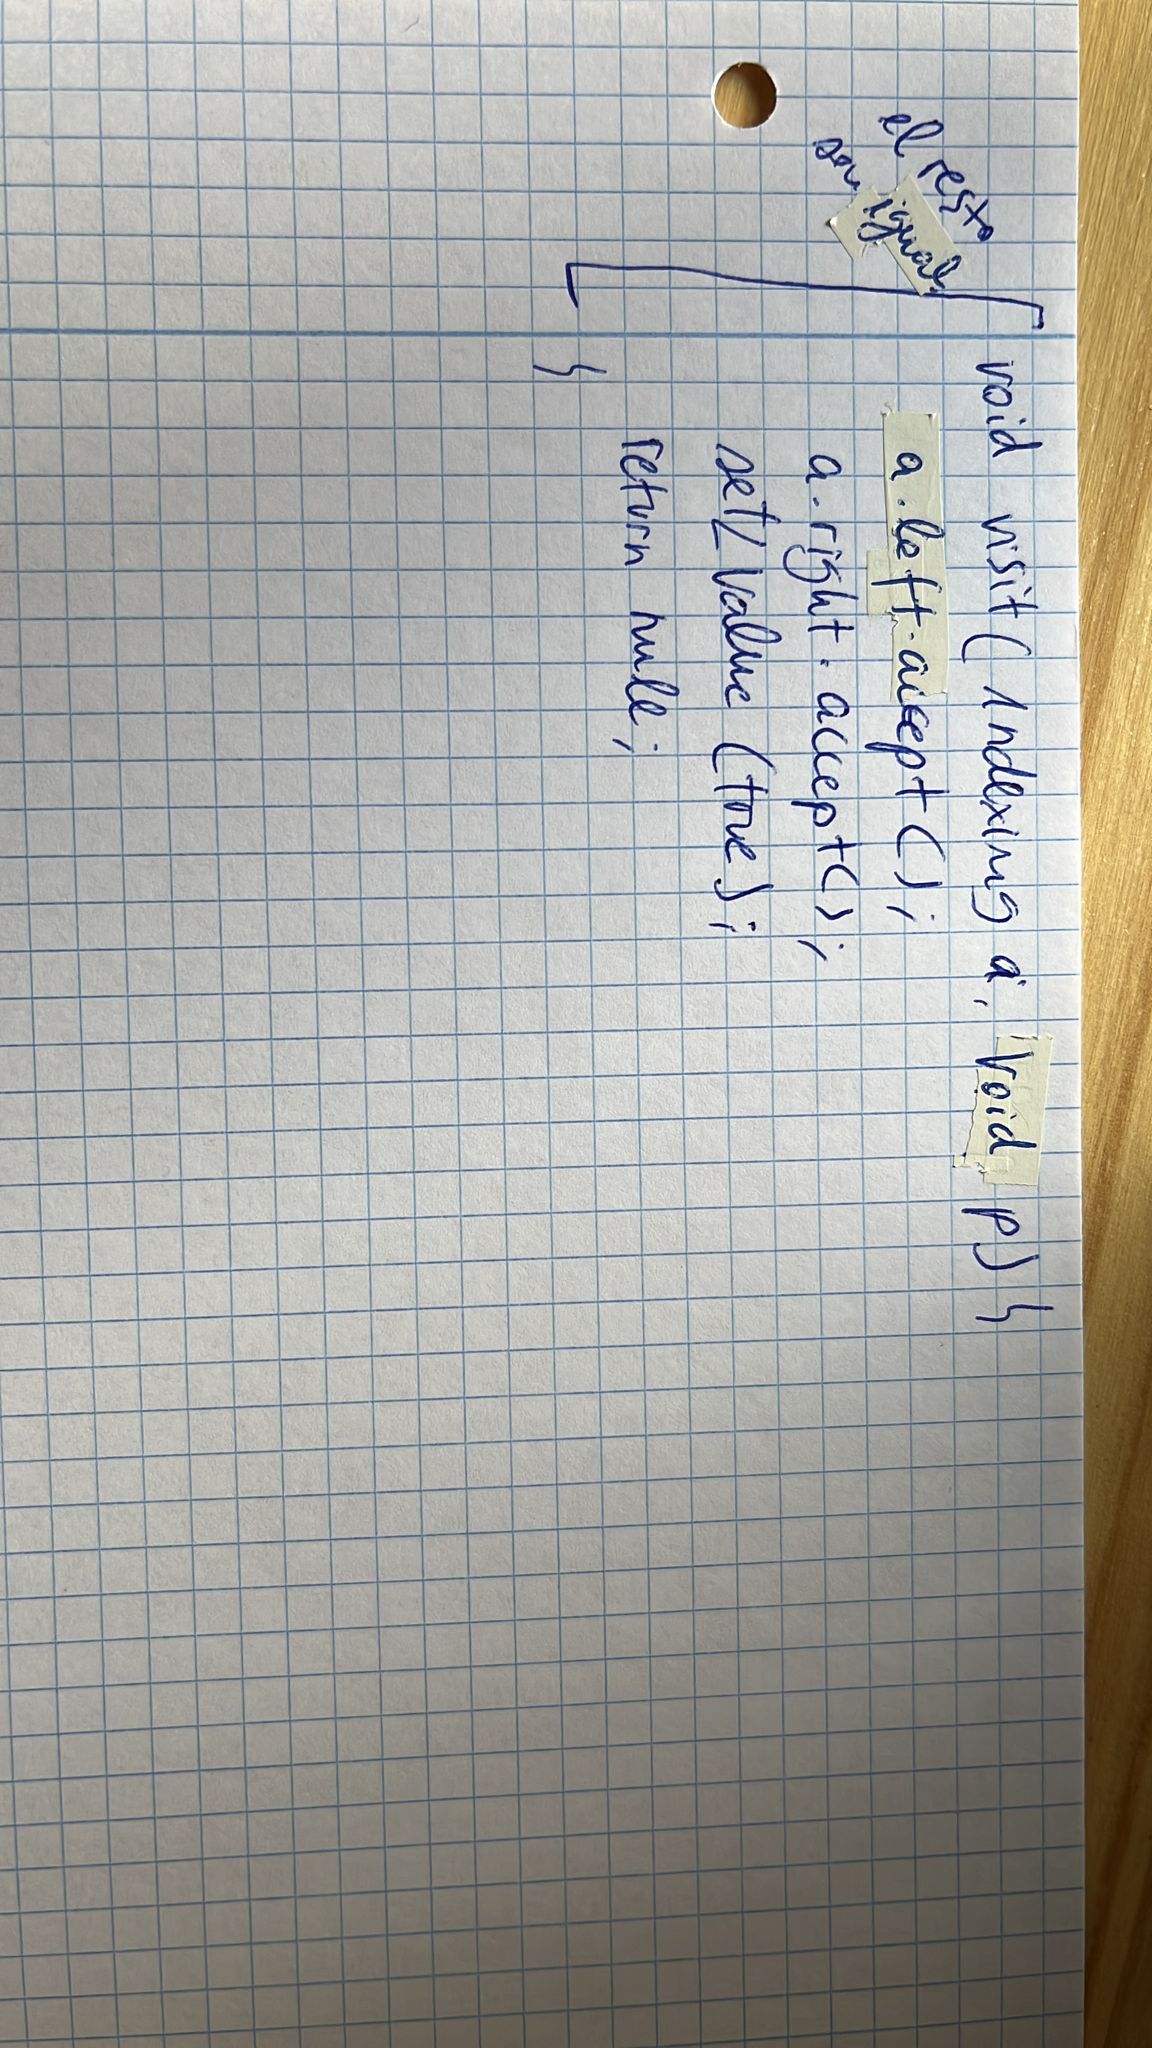 el resto
son igual
void visit( Indexing a, Void p) {
a.left.accept();
a.right.accept();
setLValue (true);
return null;
}